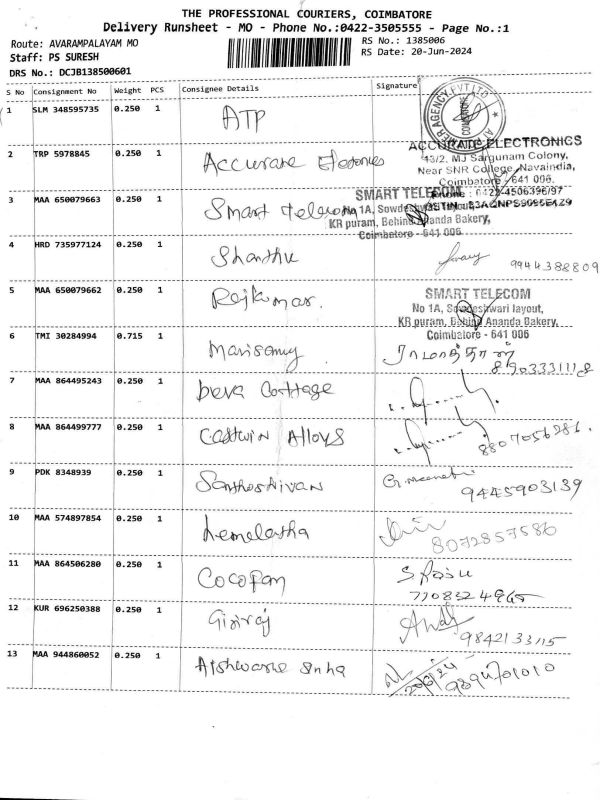 THE PROFESSIONAL COURIERS, COIMBATORE
Delivery Runsheet - MO - Phone No.:0422-3505555 - Page No.:1
Route: AVARAMPALAYAM MO
RS No.: 1385006
Staff: PS SURESH
RS Date: 20-Jun-2024
DRS No.: DCJB138500601
S No Consignment No Weight PCS Consignee Details Signature
1 SLM 348595735 0.250 1 ATP
COIMBATORE
ACCURATE ELECTRONICS
43/2, MJ Sargunam Colony,
Near SNR College, Navaindia,
Coimbatore - 641 006.
2 TRP 5978845 0.250 1 Accurate Electonics
3 MAA 650079663 0.250 1 Smart telecom
SMART TELECOM
No 1A, Sowdeshwari layout,
KR puram, Behind Ananda Bakery,
Coimbatore - 641 006
4 HRD 735977124 0.250 1 Shanthi 9944388809
5 MAA 650079662 0.250 1 Rajkumar.
SMART TELECOM
No 1A, Sowdeshwari layout,
KR puram, Behind Ananda Bakery,
Coimbatore - 641 006
6 TMI 30284994 0.715 1 Marisamy
8903331118
7 MAA 864495243 0.250 1 Deva Cottage
8 MAA 864499777 0.250 1 Castwin Alloys 8807056286.
9 PDK 8348939 0.250 1
9445903139
10 MAA 574897854 0.250 1 Hemelatha
8072857586
11 MAA 864506280 0.250 1 Cocofan S Raju
12 KUR 696250388 0.250 1 Giriraj
9842133115
13 MAA 944860052 0.250 1 Aishwarie Sinha
20/6/24
9894701010